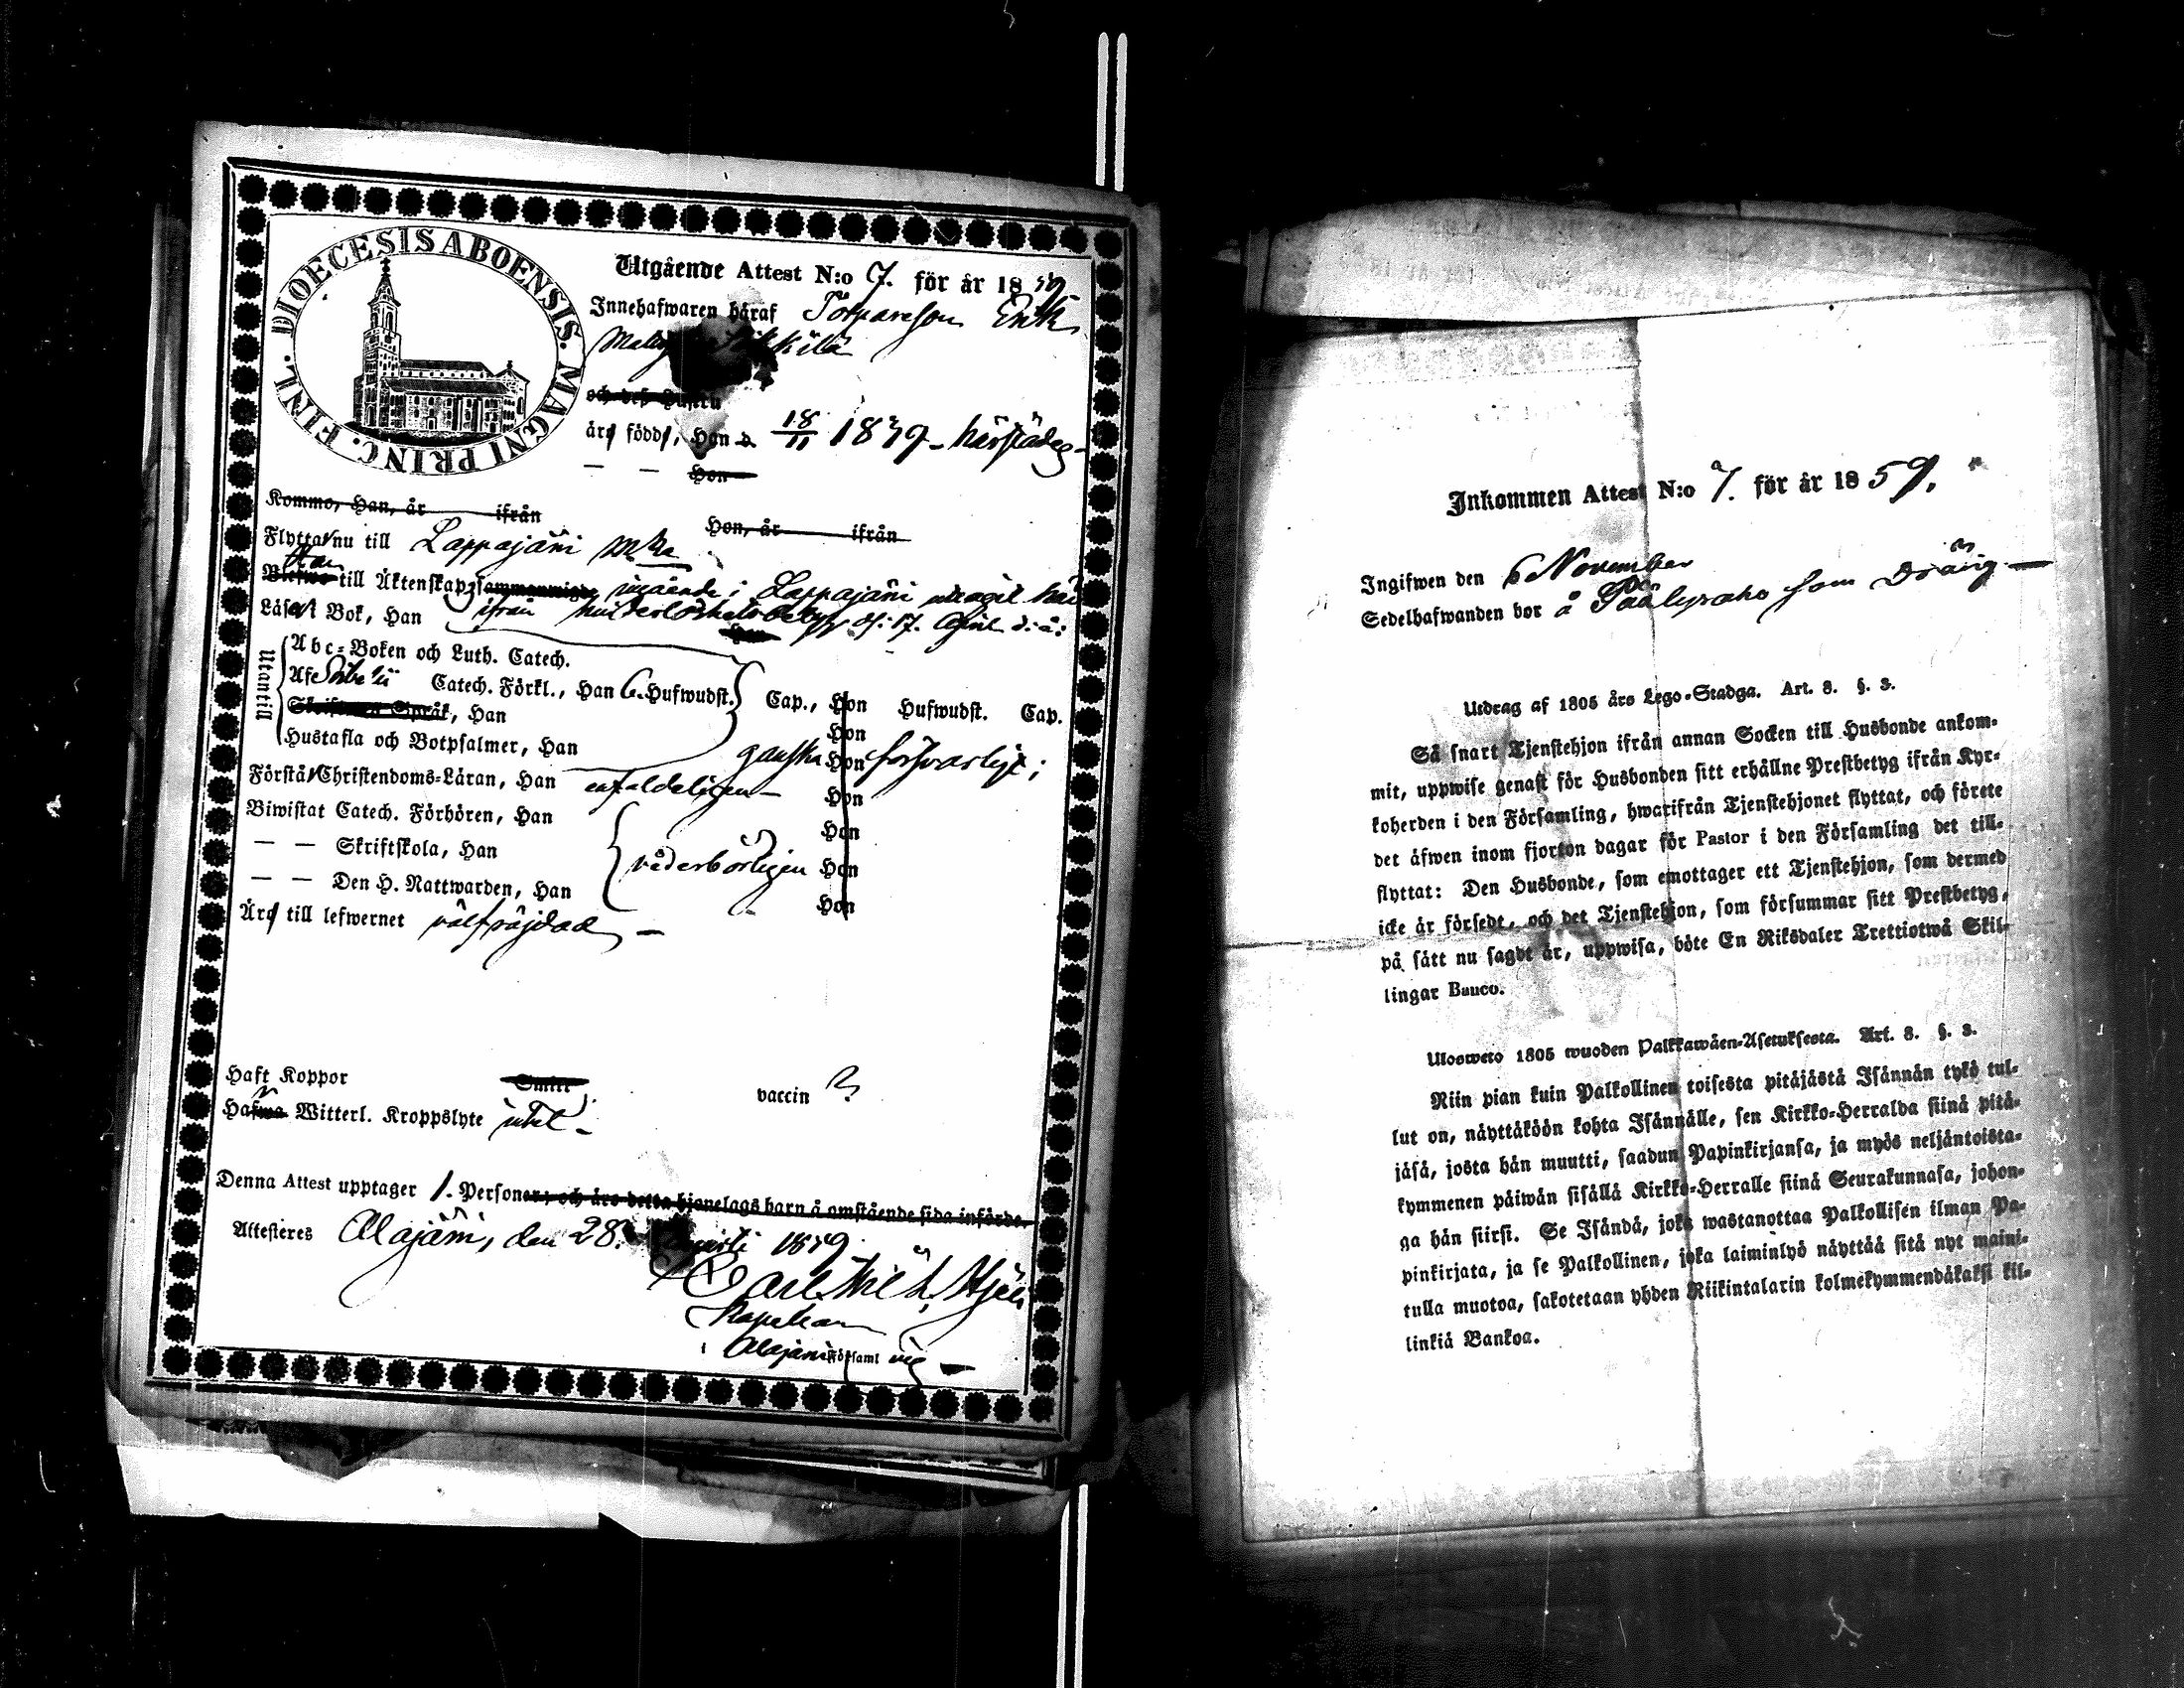 DIOECESIS ABOENSIS. MAGNI PRINC. FINL.
Utgående Attest N:o 7. för år 1859
Innehafwaren håraf Torparesson Erik
Matts kkilä
och deß Hustru
äro födde, Han d. 18/11 1839 - härstädes -
— — Hon
Komma, Han, år ifrån Hon, år ifrån
Flyttar nu till Lappajärvi
Han
till Äktenskaps ingående i Lappajärvi
Läsa i Bok, Han ifrån hinderlöshets betyg af: 17. April d: å:
Utantill
Abc-Boken och Luth. Catech.
Af Catech. Förkl., Han 6. Hufwudst. Cap., Hon Hufwudst. Cap.
Skriftenes Språk, Han Hon
Hustafla och Botpsalmer, Han ganska Hon försvarligt;
Förstå Christendoms-Läran, Han enfaldeligen — Hon
Biwistat Catech. Förhören, Han Hon
— — Skriftskola, Han vederbörligen Hon
— — Den H. Nattwarden, Han Hon
Äro till lefwernet välfräjdad —
Haft Koppor vaccin ?
Hafwa Witterl. Kroppslyte intet -
Denna Attest upptager 1. Personer, och äro detta hjonelags barn å omstående sida införde.
Attesteres Alajärvi, den 28. 1859.
Carl Wilh.
Kapellan
i Alajärvi Församl
Inkommen Attest N:o 7. för år 1859.
Ingifwen den 6 November
Sedelhafwanden bor å Päälysaho som Dräng —
Utdrag af 1805 års Lego-Stadga. Art. 8. §. 3.
Så snart Tjenstehjon ifrån annan Socken till Husbonde ankom-
mit, uppwise genast för Husbonden sitt erhållne Prestbetyg ifrån Kyr-
koherden i den Församling, hwarifrån Tjenstehjonet flyttat, och förete
det åfwen inom fjorton dagar för Pastor i den Församling det till-
flyttat: Den Husbonde, som emottager ett Tjenstehjon, som dermed
icke är försedt, och det Tjenstehjon, som försummar sitt Prestbetyg,
på sätt nu sagdt är, uppwisa, böte En Riksdaler Trettiotwå Skil-
lingar Banco.
Ulosweto 1805 wuoden Palkkawäen-Asetuksesta. Art. 8. §. 3.
Niin pian kuin Palkollinen toisesta pitäjästä Isännän tykö tul-
lut on, näyttäköön kohta Isännälle, sen Kirkko-Herralda siinä pitä-
jäsä, josta hän muutti, saadun Papinkirjansa, ja myös neljäntoista-
kymmenen päiwän sisällä Kirkko-Herralle siinä Seurakunnasa, johon-
ga hän siirsi. Se Isändä, joka wastanottaa Palkollisen ilman Pa-
pinkirjata, ja se Palkollinen, joka laiminlyö näyttää sitä nyt maini-
tulla muotoa, sakotetaan yhden Riikintalarin kolmekymmendäkaksi kil-
linkiä Bankoa.